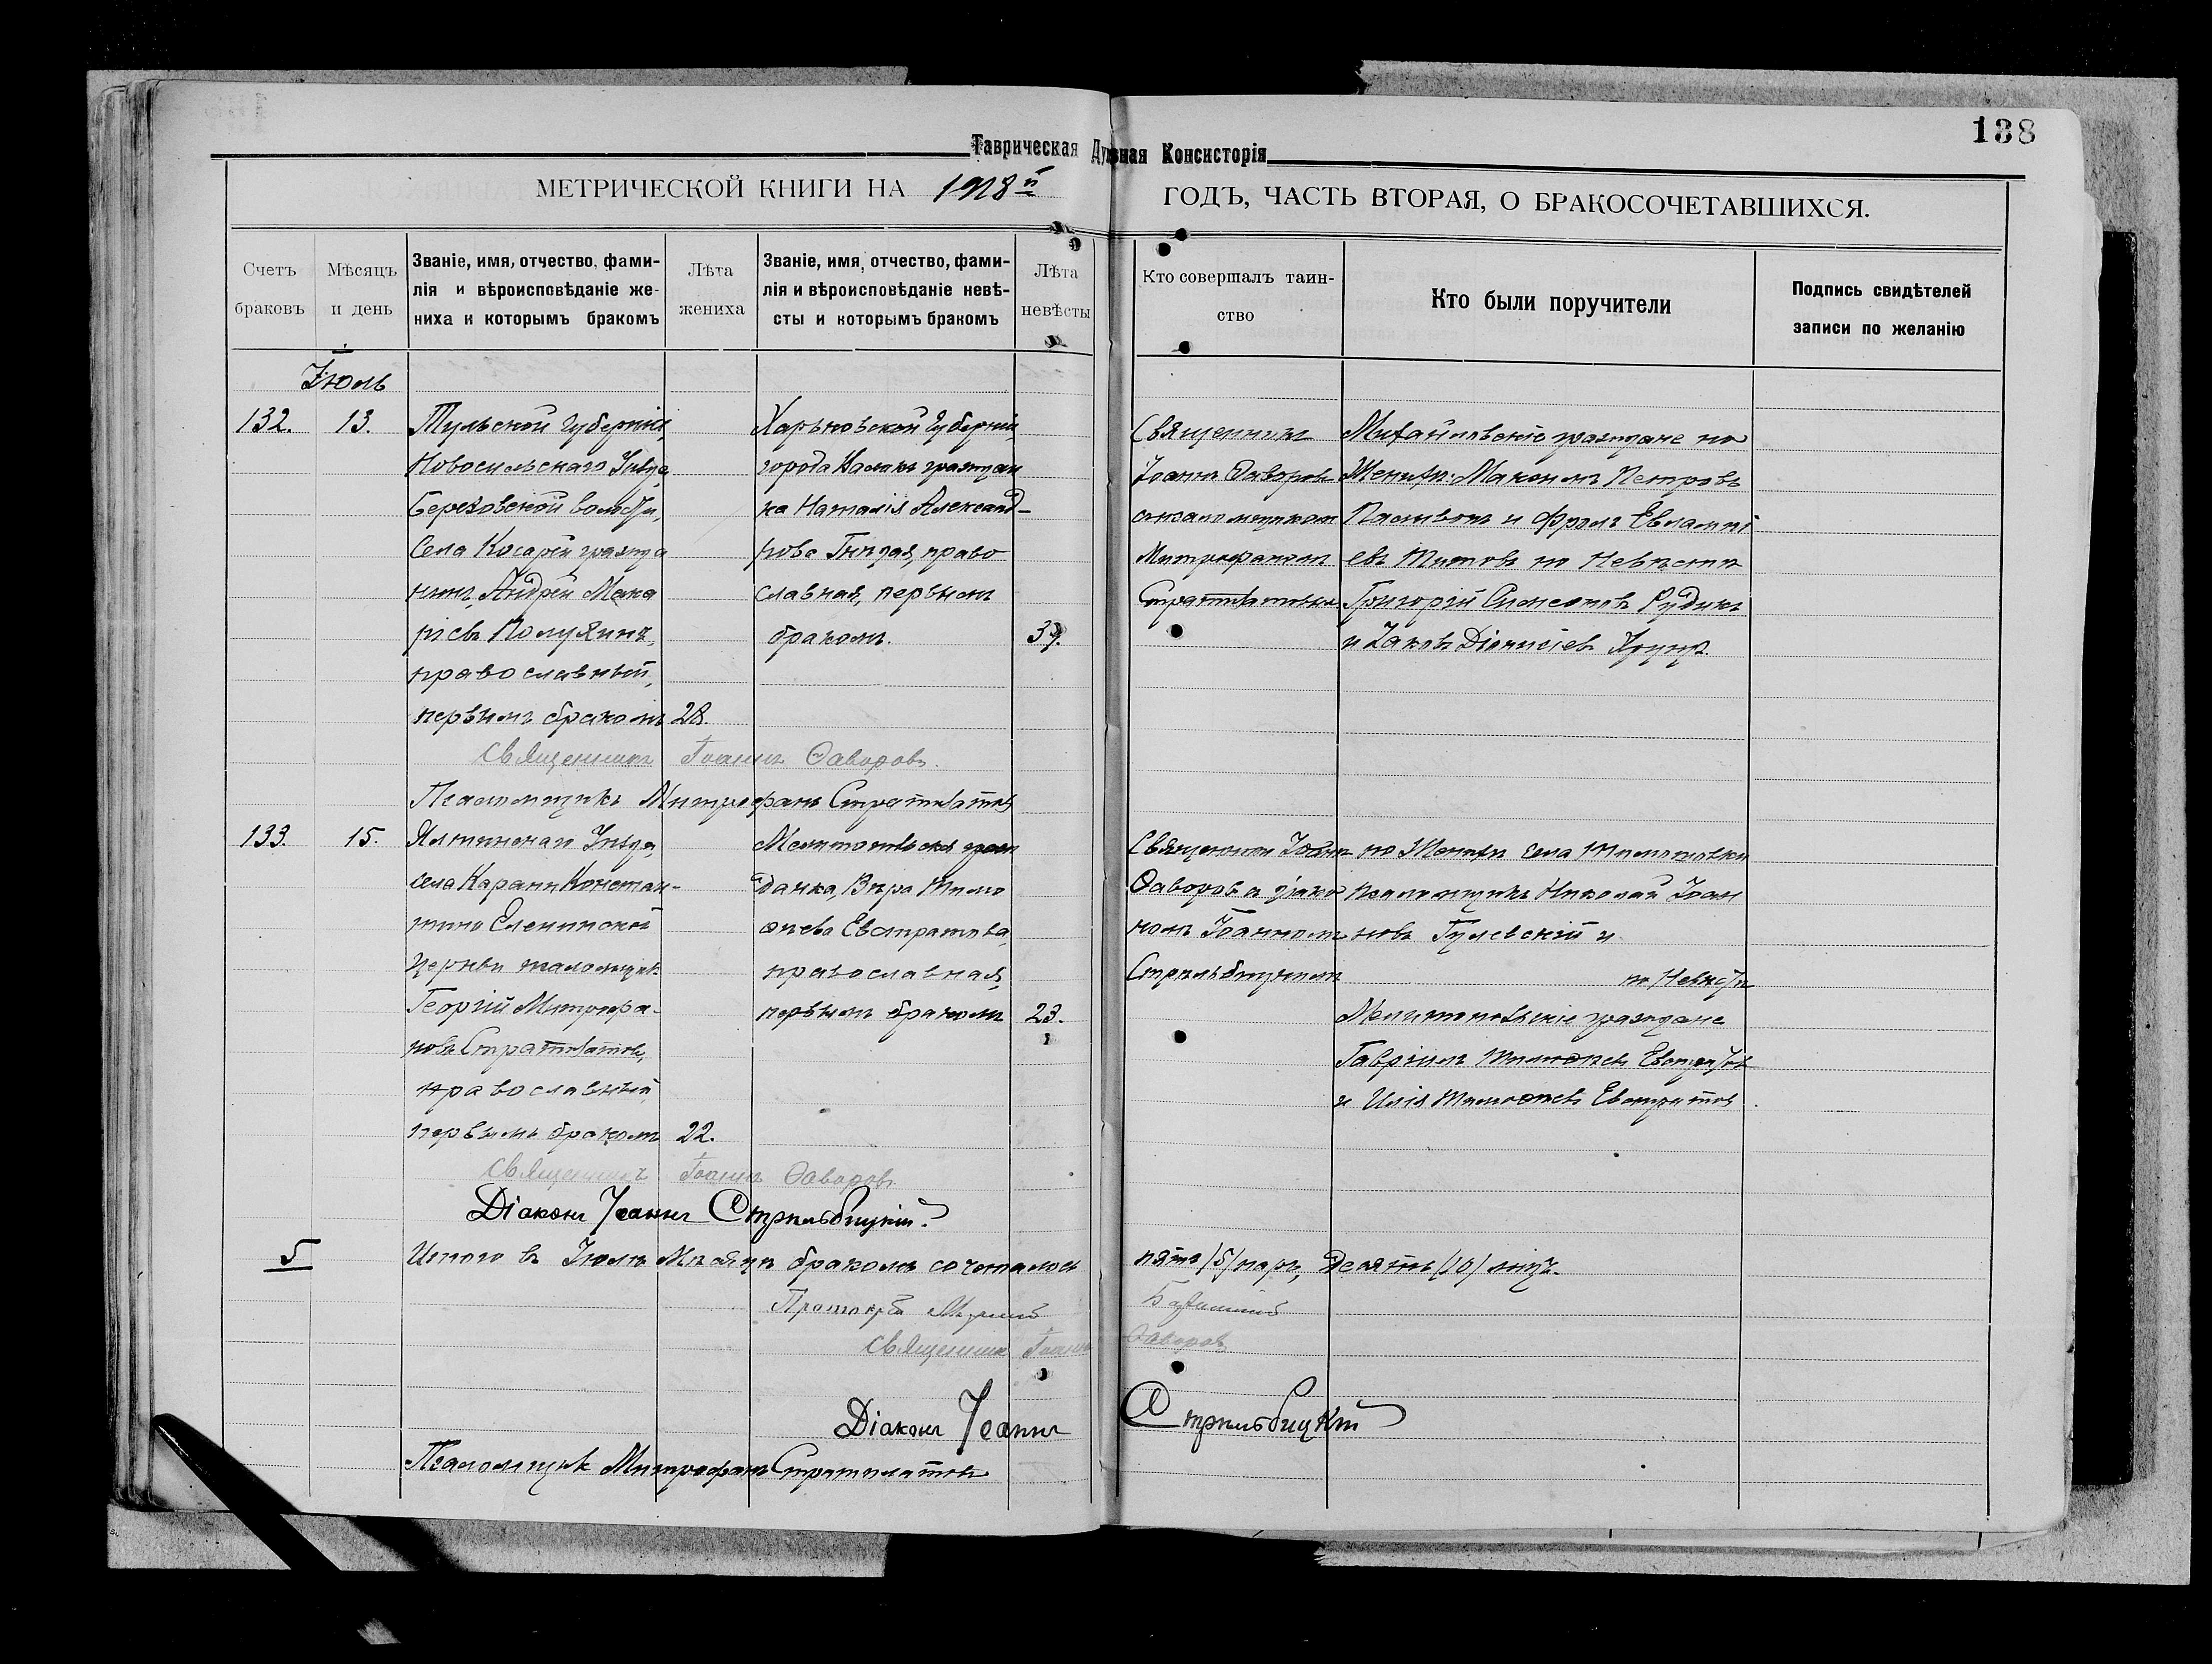 138
Таврическая Духовная Консисторія
МЕТРИЧЕСКОЙ КНИГИ НА 1918й ГОДЪ, ЧАСТЬ ВТОРАЯ, О БРАКОСОЧЕТАВШИХСЯ.
Счетъ браковъ
Мѣсяцъ и день
Званіе, имя, отчество, фами-
лія и вѣроисповѣданіе же-
ниха и которымъ бракомъ
Лѣта жениха
Званіе, имя, отчество, фами-
лія и вѣроисповѣданіе невѣ-
сты и которымъ бракомъ
Лѣта невѣсты
Кто совершалъ таин-
ство
Кто были поручители
Подпись свидѣтелей
записи по желанію
Іюль
132. 13.
Тульской Губерніи,
Новосильскаго Уѣзда,
Березовской волости,
Села Косарѣи гражда
нинъ, Андрей Мака
ріевъ Полухинъ,
православный,
первымъ бракомъ 28.
Харьковской Губерніи,
города Валокъ граждан
ка Наталія Александ-
рова Гнѣдая, право
славная, первымъ
бракомъ.
Священникъ
Іоаннъ Ѳаворовъ
съ псаломщикомъ
Митрофаномъ
Стратилатовымъ
Михайловскіе граждане по
Женихѣ: Максимъ Петровъ
и Фролъ Евлампі
евъ Титовъ по Невѣстѣ
Григорій Симеоновъ Рудикъ
и Іаковъ Діонисіевъ
Священникъ Іоаннъ Ѳаворовъ.
Псаломщикъ Митрофанъ Стратилатовъ
133. 15.
Ялтинскаго Уѣзда,
села Карани Констан-
тино Еленинской
Церкви псаломщик
Георгій Митрофа-
новъ Стратилатовъ,
православный
первымъ бракомъ 22.
Мелитопольская граж
данка, Вѣра Тимо
ѳеева Евстратова,
православная,
первымъ бракомъ 23.
Священникъ Іоаннъ
Ѳаворовъ съ діако
номъ Іоанномъ
Стрѣльбицкимъ
по Женихѣ села Тимошовки
псаломщикъ Николай Іоан
новъ Гулевскій и
по Невѣстѣ
Мелитопольскіе граждане
Гавріилъ Тимоѳеевъ Евстратовъ
и Илія Тимоѳеевъ Евстратовъ
Священникъ Іоаннъ Ѳаворовъ
Діаконъ Іоаннъ Стрѣльбицкій.
5 Итого въ Іюлѣ Мѣсяцѣ бракомъ сочеталось пять /5/ паръ, Десять /10/ лицъ.
Священникъ Іоаннъ Ѳаворовъ
Діаконъ Іоаннъ Стрѣльбицкій
Псаломщикъ Митрофанъ Стратилатовъ